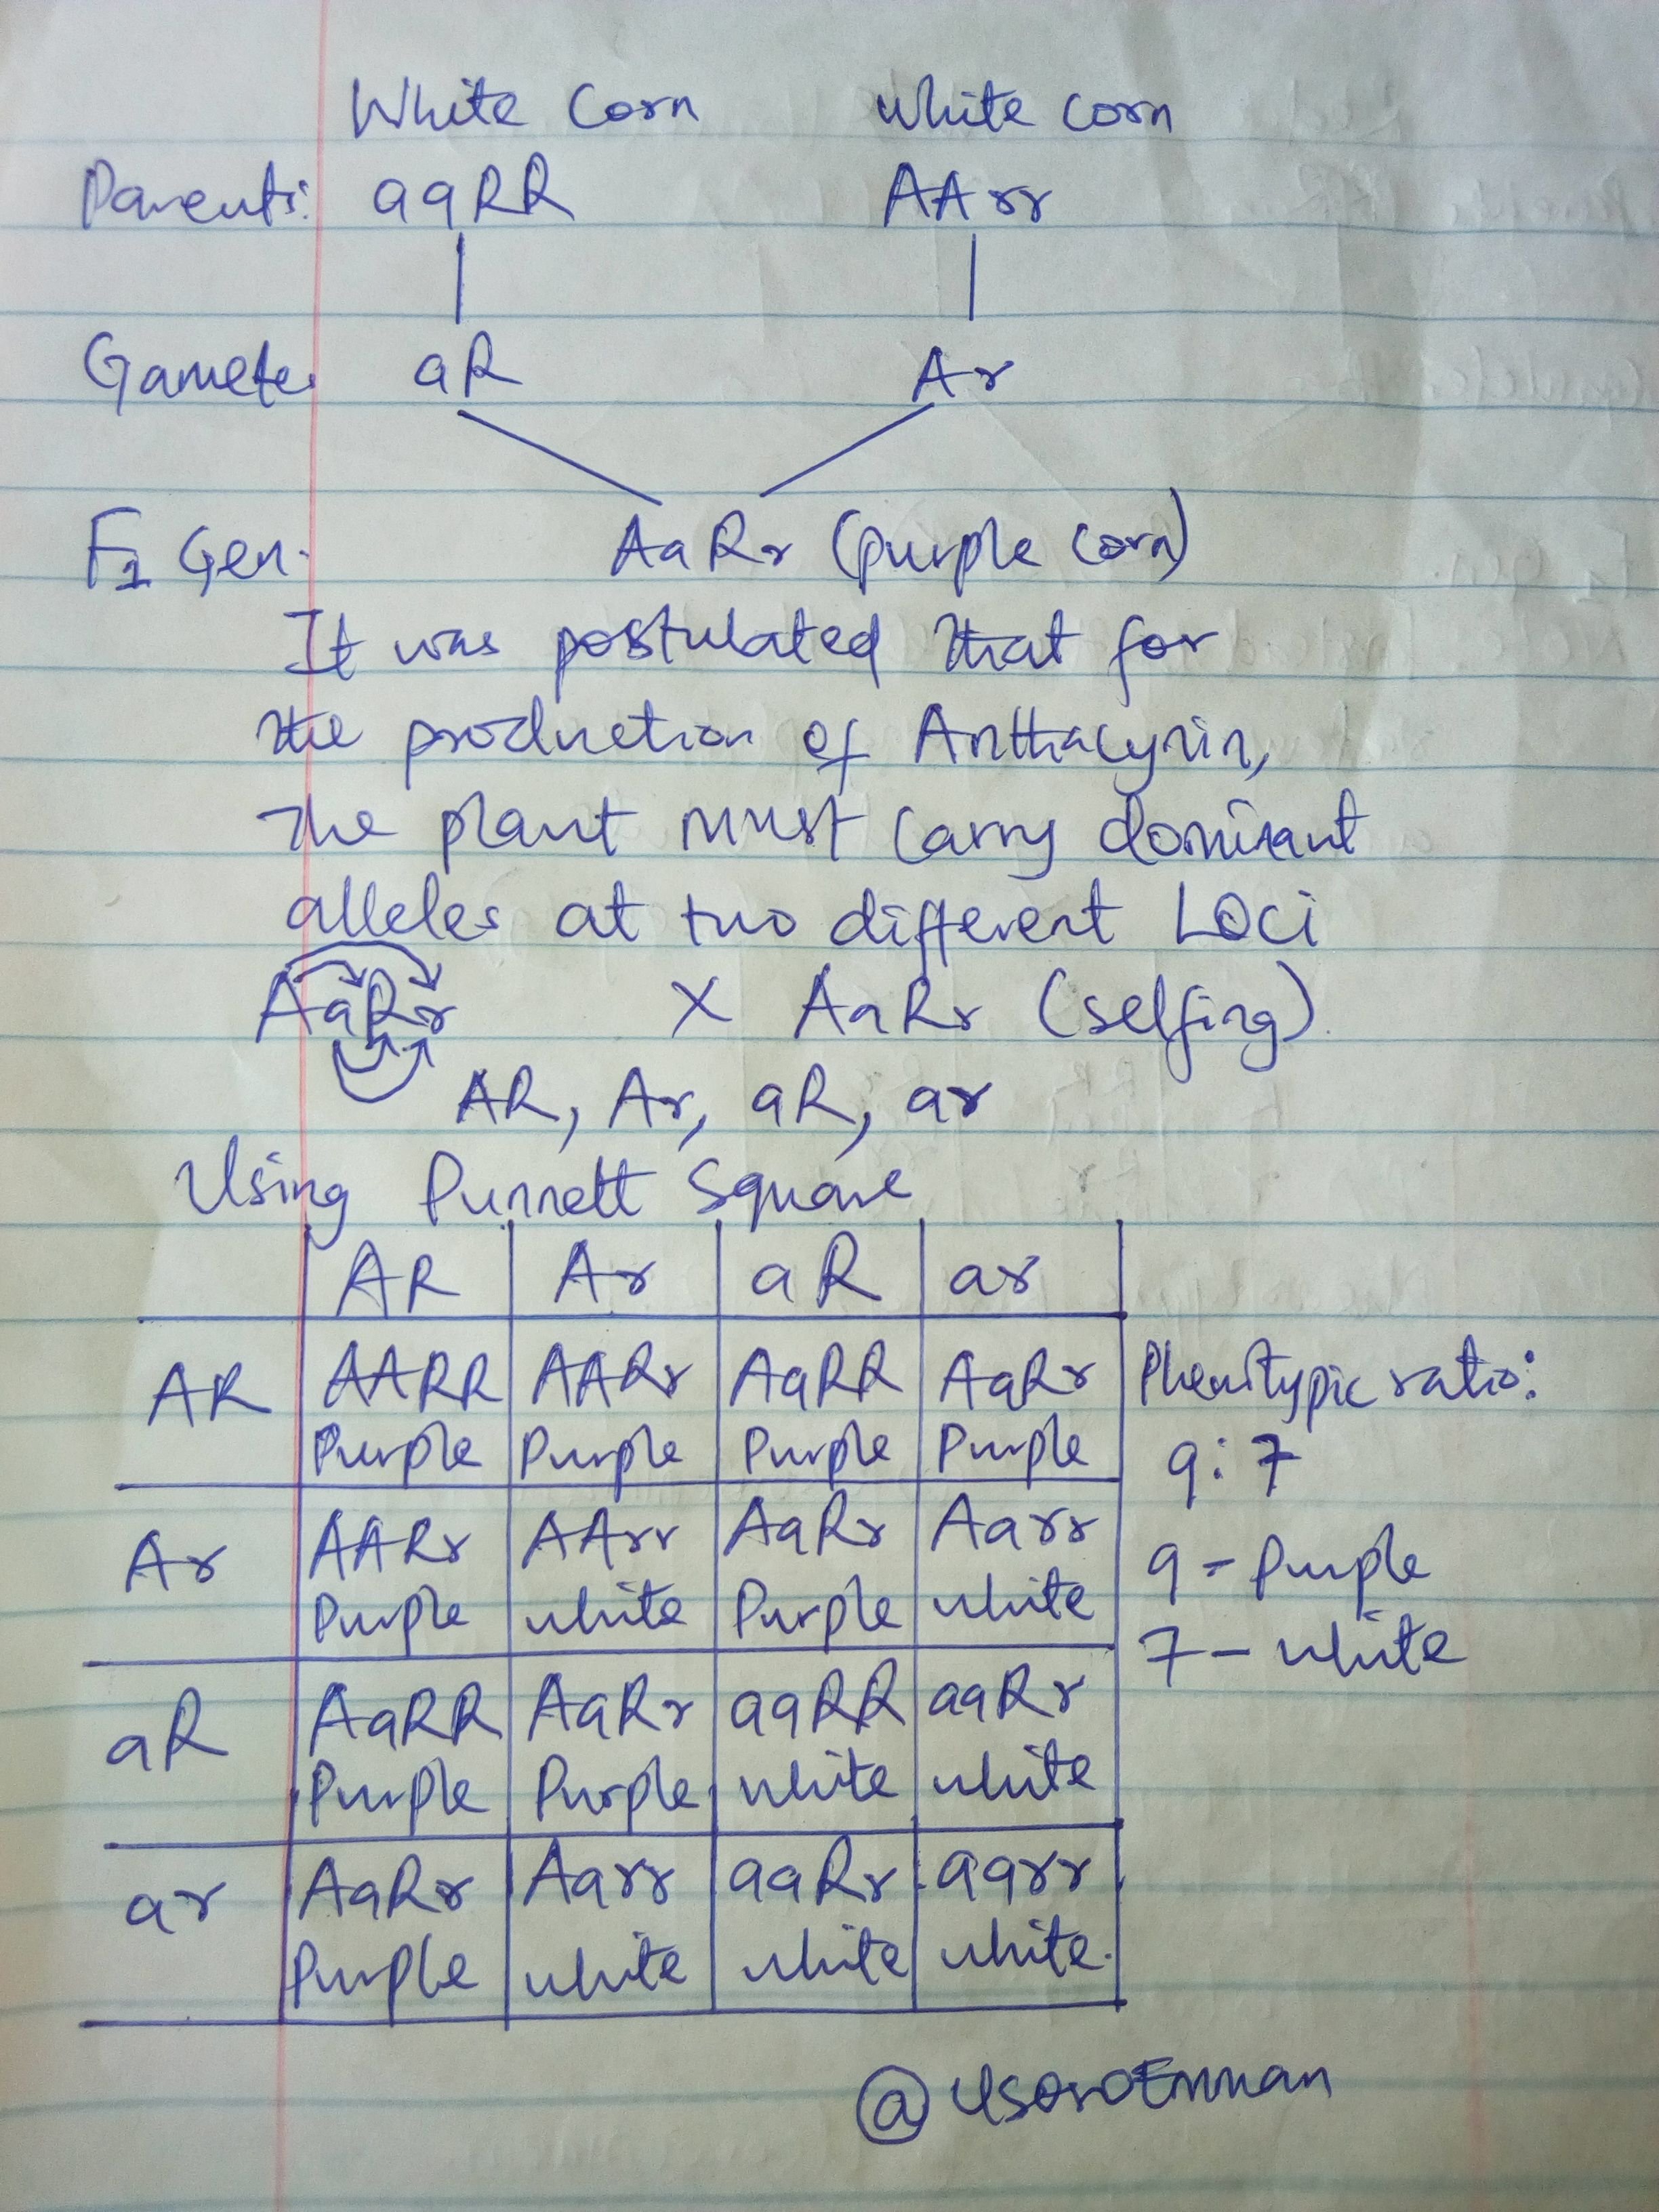 White Corn white corn
Parents: aaRR AArr
Gamete. aR Ar
F1 Gen. AaRr (purple corn)
It was postulated that for
the production of Anthacynin,
the plant must carry dominant
alleles at two different Loci
AaRr X AaRr (selfing).
AR, Ar, aR, ar
Using Punnett Square
AR Ar aR ar
AR AARR AARr AaRR AaRr Phenitypic ratio:
Purple Purple Purple Purple 9:7
Ar AARr AArr AaRr Aarr 9 - Purple
Purple white Purple white 7 - white
aR AaRR AaRr aaRR aaRr
Purple Purple white white
ar AaRr Aarr aaRr aarr
Purple white white white.
@UsoroEmman